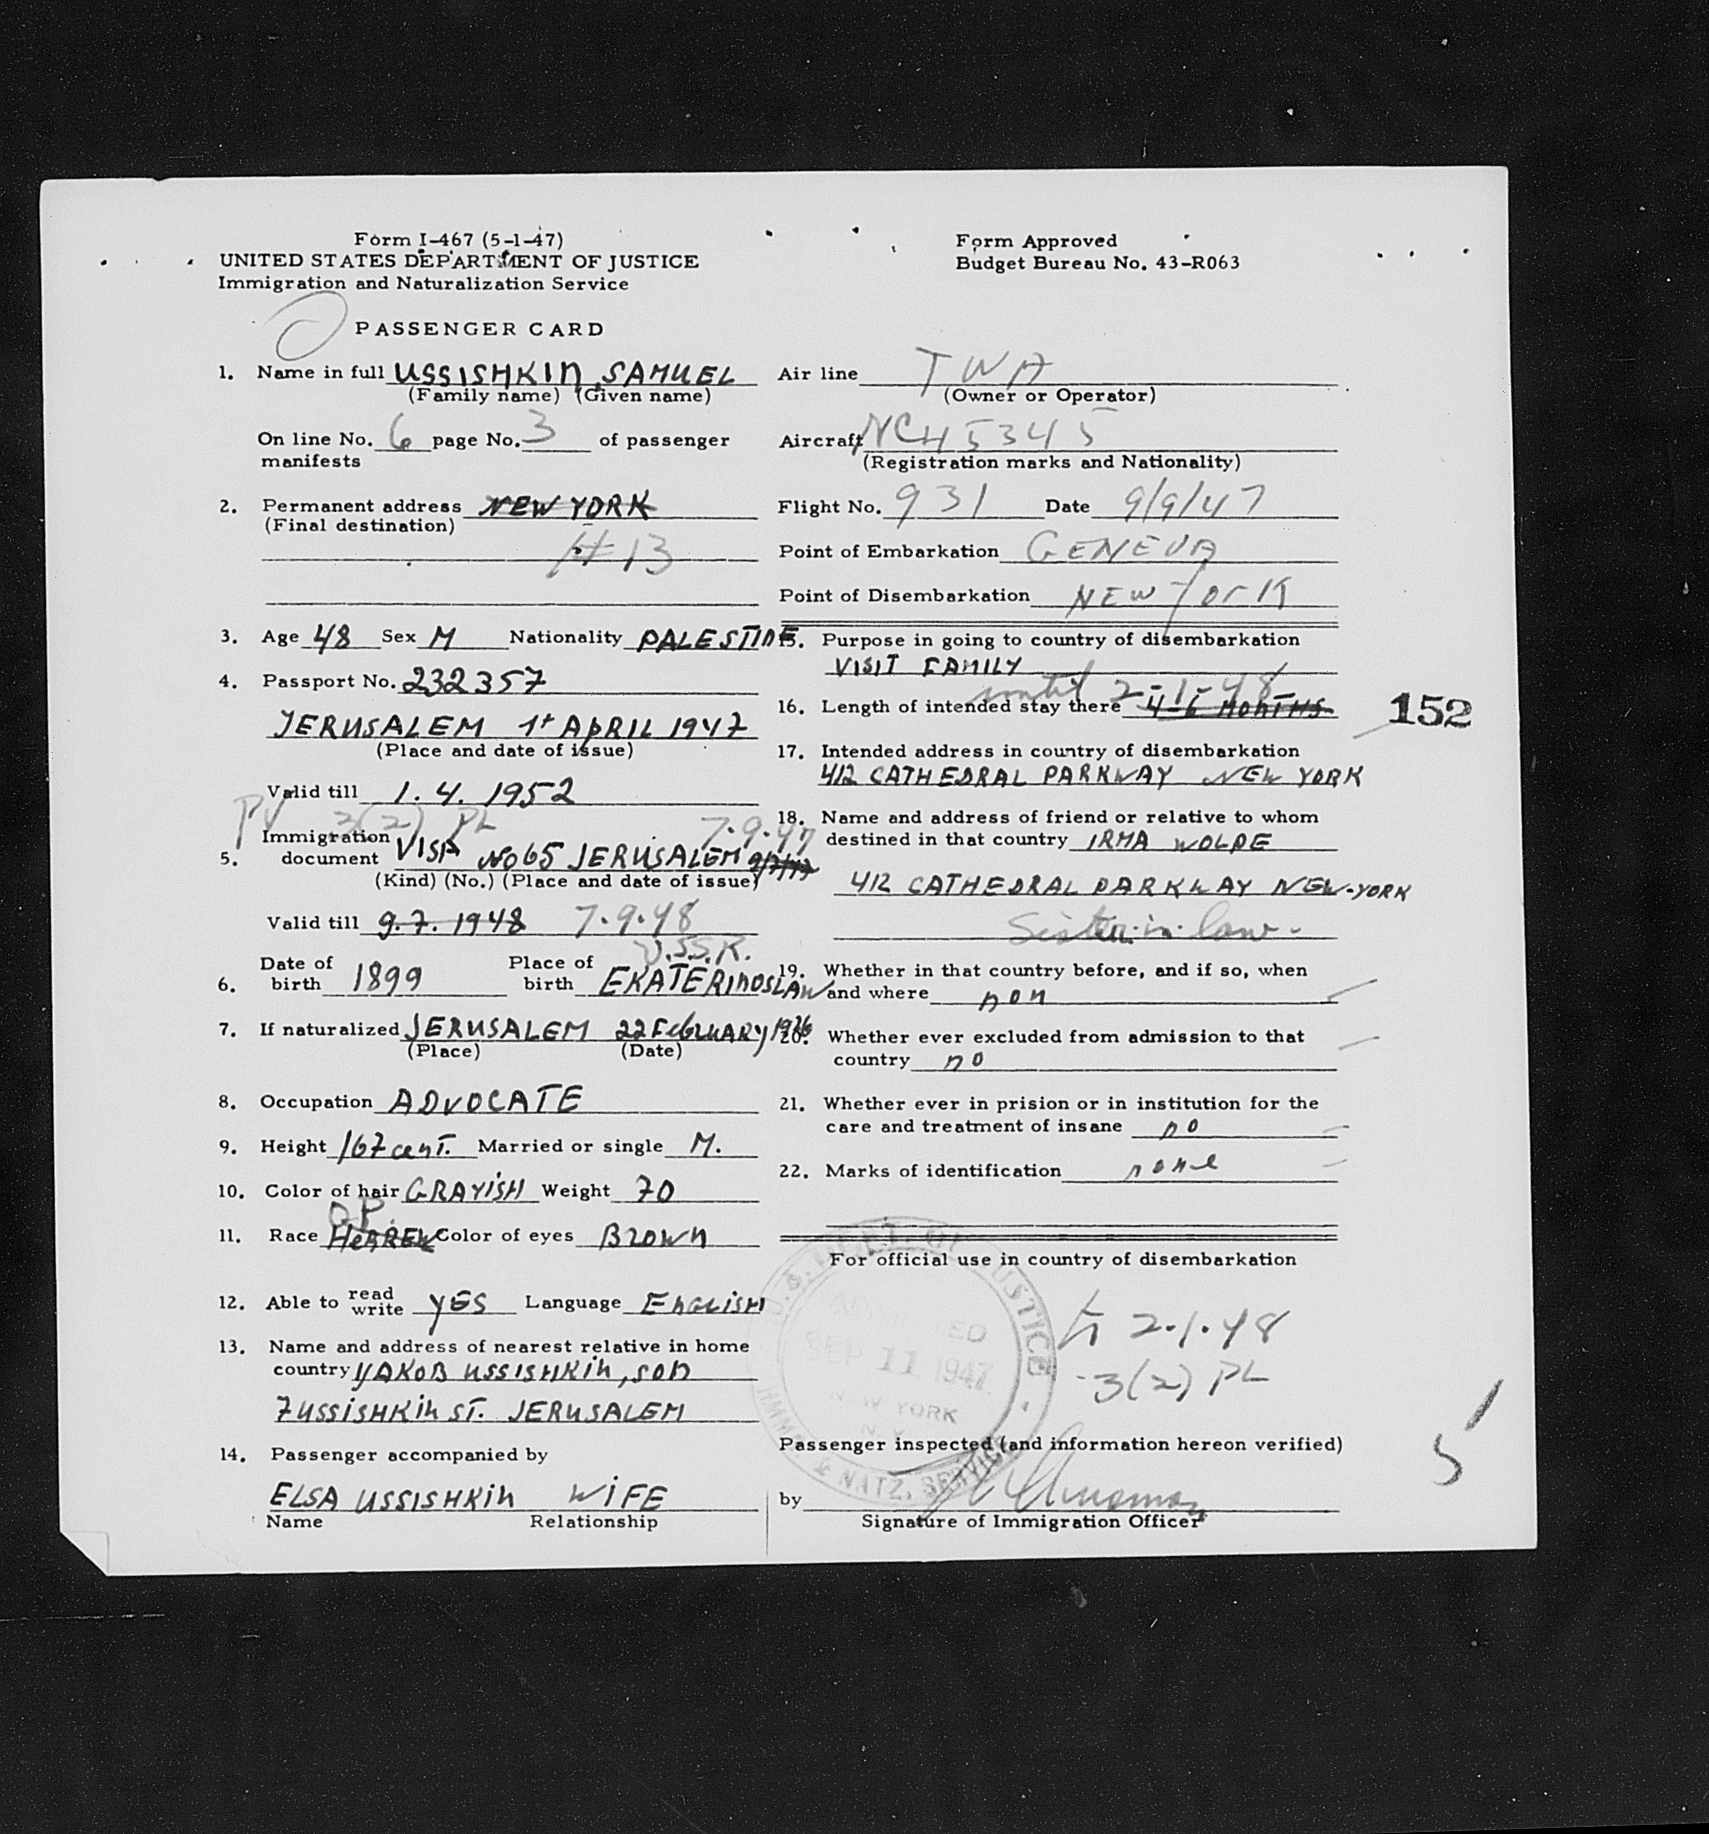 Form I-467 (5-1-47)
UNITED STATES DEPARTMENT OF JUSTICE
Immigration and Naturalization Service
PASSENGER CARD
1. Name in full USSISHKIN, SAMUEL
(Family name) (Given name)
On line No. 6 page No. 3 of passenger
manifests
2. Permanent address NEW YORK
(Final destination)
#13
3. Age 48 Sex M Nationality PALESTINE
4. Passport No. 232357
JERUSALEM 1st APRIL 1947
(Place and date of issue)
Valid till 1. 4. 1952
PV 3(2) PL 7.9.47
Immigration
5. document VISA No 65 JERUSALEM 9/7/47
(Kind) (No.) (Place and date of issue)
Valid till 9.7. 1948 7.9.48
U.S.S.R.
6. Date of birth 1899 Place of birth EKATERINOSLAW
7. If naturalized JERUSALEM 22 February 1926
(Place) (Date)
8. Occupation ADVOCATE
9. Height 167 cent. Married or single M.
10. Color of hair GRAYISH Weight 70
11. Race HEBREW Color of eyes BROWN
12. Able to read write YES Language ENGLISH
13. Name and address of nearest relative in home
country YAKOB USSISHKIN, SON
7 USSISHKIN ST. JERUSALEM
14. Passenger accompanied by
ELSA USSISHKIN WIFE
Name Relationship
Form Approved
Budget Bureau No. 43-R063
Air line TWA
(Owner or Operator)
Aircraft NCH5345
(Registration marks and Nationality)
Flight No. 931 Date 9/9/47
Point of Embarkation GENEVA
Point of Disembarkation NEW YorK
15. Purpose in going to country of disembarkation
VISIT FAMILY
until 2-1-48
16. Length of intended stay there 4-6 MONTHS
152
17. Intended address in country of disembarkation
412 CATHEDRAL PARKWAY NEW YORK
18. Name and address of friend or relative to whom
destined in that country IRMA WOLPE
412 CATHEDRAL PARKWAY NEW-YORK
Sister-in-law-
19. Whether in that country before, and if so, when
and where non
20. Whether ever excluded from admission to that
country no
21. Whether ever in prision or in institution for the
care and treatment of insane no
22. Marks of identification none
For official use in country of disembarkation
U.S. DEPT. OF JUSTICE
ADMITTED
SEP 11 1947
NEW YORK
N.Y.
IMMG. & NATZ. SERVICE
2.1.48
3(2) PL
5
Passenger inspected (and information hereon verified)
by
Signature of Immigration Officer